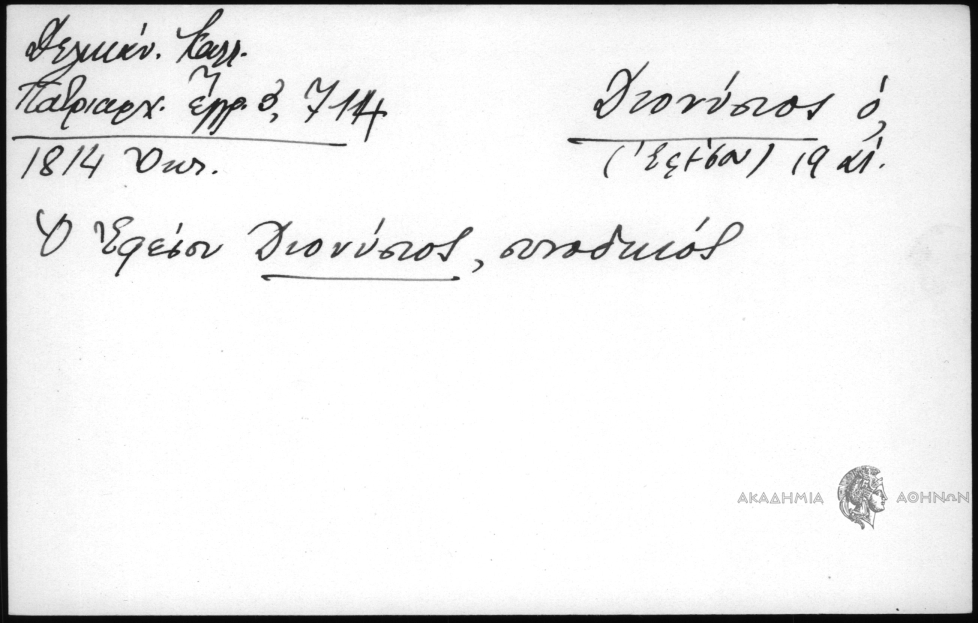 Δελικάν. Καλλ.
Πατριαρχ. ἔγγρ. 3, 714
1814 Ὀκτ.
Διονύσιος ὁ,
(Ἐφέσου) 19 αἰ.
Ὁ Ἐφέσου Διονύσιος, συνοδικός
ΑΚΑΔΗΜΙΑ ΑΘΗΝΩΝ